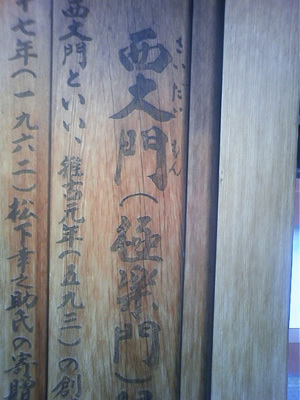 西大門（極楽門）は
さいだいもん
西大門といい、推古元年（五九三）の創
十七年（一九六二）松下幸之助氏の寄贈